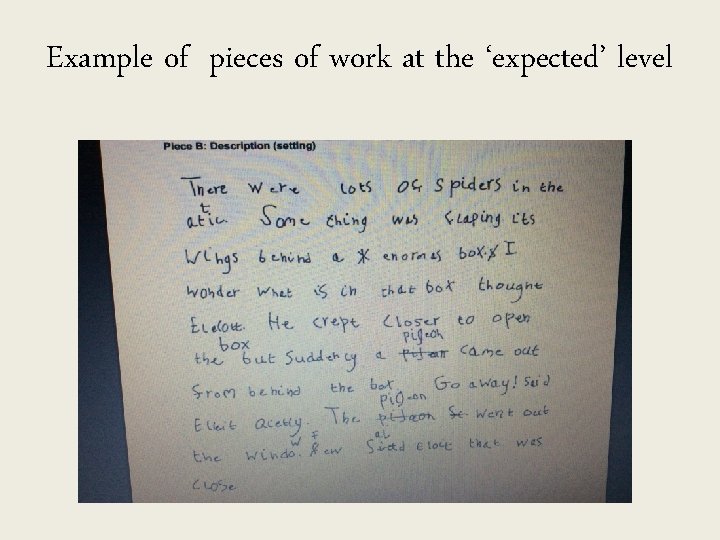 Example of pieces of work at the ‘expected’ level
Piece B: Description (setting)
There were lots of spiders in the
t
atic Some thing was flaping its
wings behind a enormas box. I
wonder what is in that box thought
Eleott. He crept closer to open
box pigeon
the but suddenly a came out
from behind the box. Go away! said
pigeon
Eleit acetly. The went out
w F al
the windo. ew Siad eloit that was
close